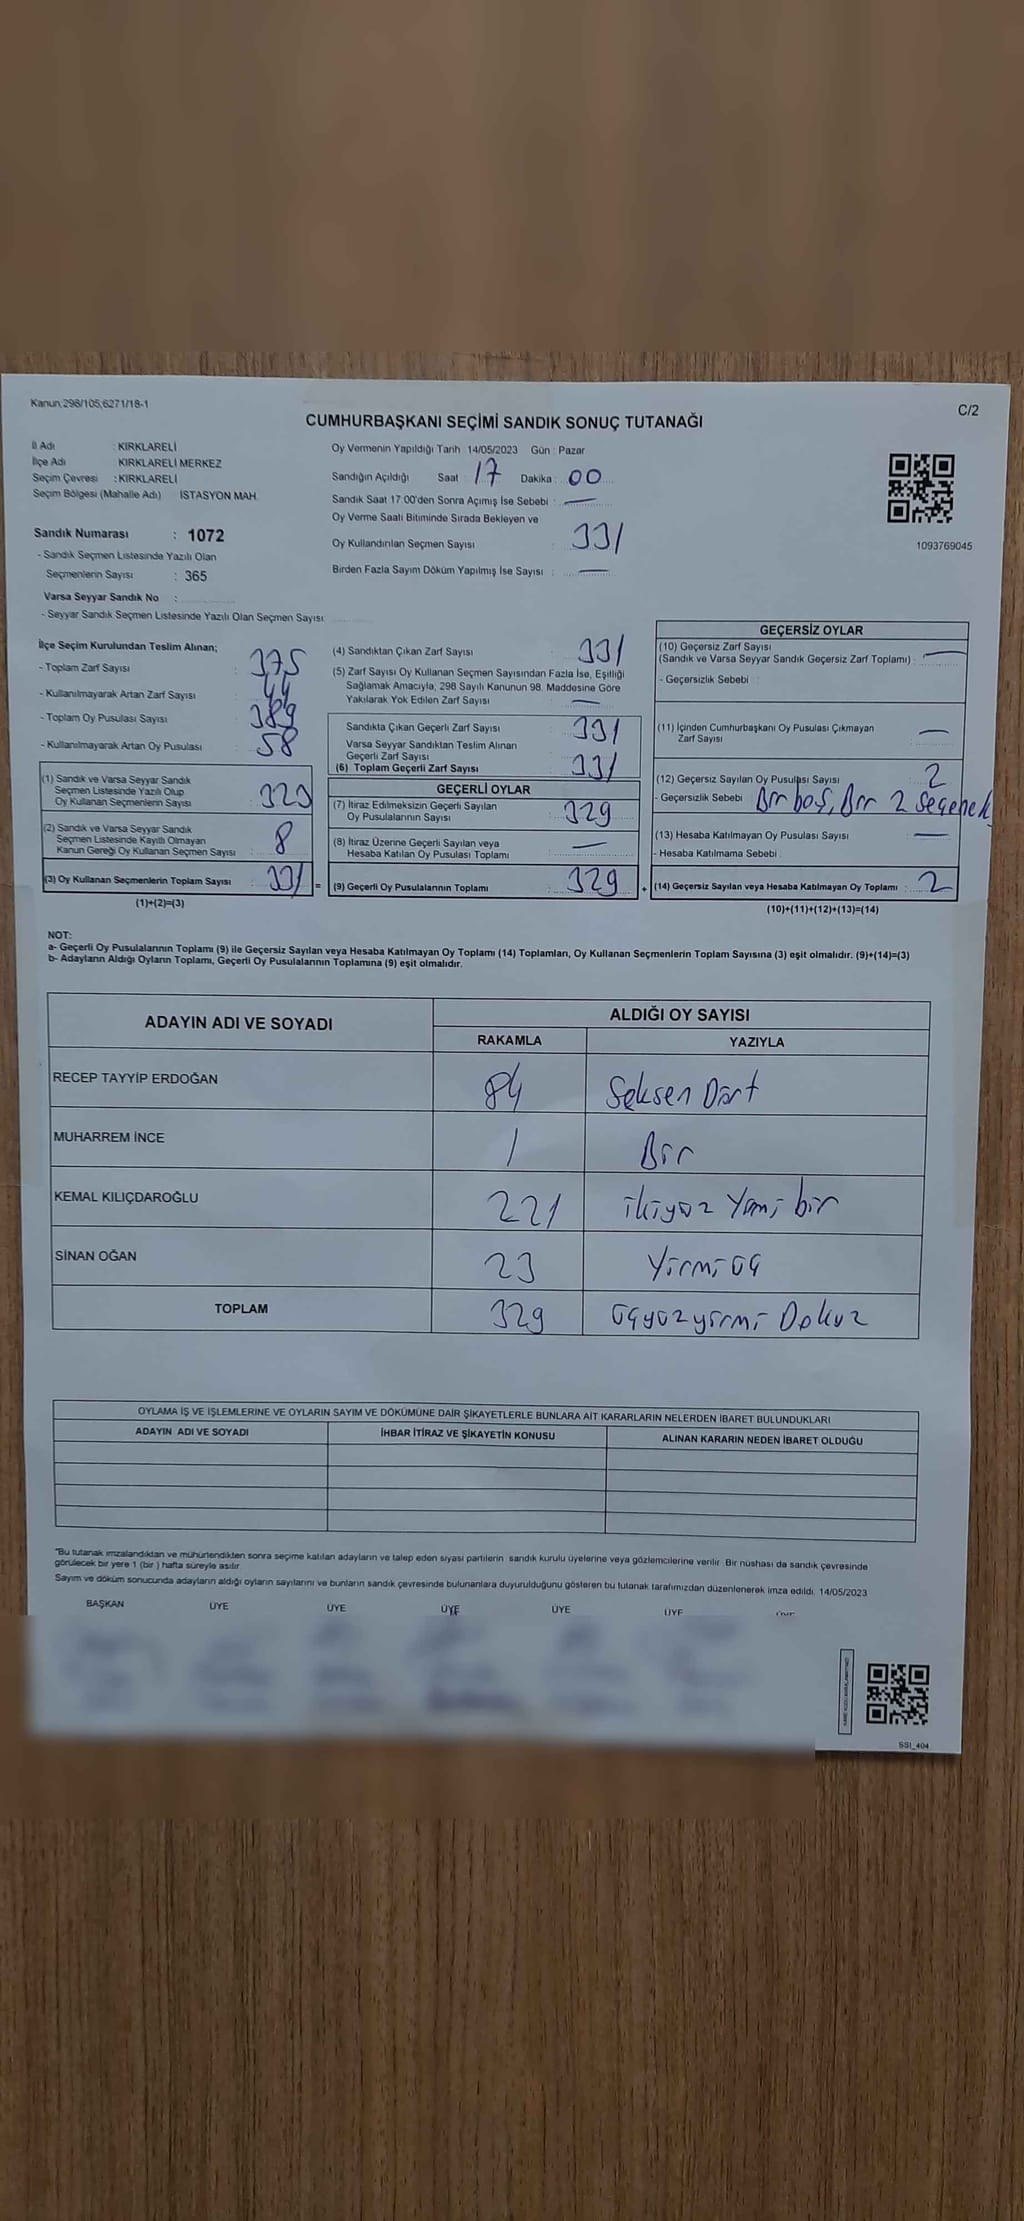 Kanun;298/105;6271/18-1
C/2
CUMHURBAŞKANI SEÇİMİ SANDIK SONUÇ TUTANAĞI
İl Adı : KIRKLARELİ
İlçe Adı KIRKLARELİ MERKEZ
Seçim Çevresi : KIRKLARELİ
Seçim Bölgesi (Mahalle Adı) İSTASYON MAH.
Oy Vermenin Yapıldığı Tarih : 14/05/2023 Gün : Pazar
Sandığın Açıldığı Saat 17 Dakika : 00
Sandık Saat 17:00'den Sonra Açımış İse Sebebi : —
Oy Verme Saati Bitiminde Sırada Bekleyen ve
Oy Kullandırılan Seçmen Sayısı : 331
Birden Fazla Sayım Döküm Yapılmış İse Sayısı : —
1093769045
Sandık Numarası : 1072
- Sandık Seçmen Listesinde Yazılı Olan
Seçmenlerin Sayısı : 365
Varsa Seyyar Sandık No :
- Seyyar Sandık Seçmen Listesinde Yazılı Olan Seçmen Sayısı:
İlçe Seçim Kurulundan Teslim Alınan;
- Toplam Zarf Sayısı : 375
- Kullanılmayarak Artan Zarf Sayısı : 44
- Toplam Oy Pusulası Sayısı : 389
- Kullanılmayarak Artan Oy Pusulası : 58
(1) Sandık ve Varsa Seyyar Sandık
Seçmen Listesinde Yazılı Olup
Oy Kullanan Seçmenlerin Sayısı : 323
(2) Sandık ve Varsa Seyyar Sandık
Seçmen Listesinde Kayıtlı Olmayan
Kanun Gereği Oy Kullanan Seçmen Sayısı : 8
(3) Oy Kullanan Seçmenlerin Toplam Sayısı : 331 =
(1)+(2)=(3)
(4) Sandıktan Çıkan Zarf Sayısı : 331
(5) Zarf Sayısı Oy Kullanan Seçmen Sayısından Fazla İse, Eşitliği
Sağlamak Amacıyla, 298 Sayılı Kanunun 98. Maddesine Göre
Yakılarak Yok Edilen Zarf Sayısı : —
Sandıkta Çıkan Geçerli Zarf Sayısı : 331
Varsa Seyyar Sandıktan Teslim Alınan
Geçerli Zarf Sayısı
(6) Toplam Geçerli Zarf Sayısı : 331
GEÇERLİ OYLAR
(7) İtiraz Edilmeksizin Geçerli Sayılan
Oy Pusulalarının Sayısı : 329
(8) İtiraz Üzerine Geçerli Sayılan veya
Hesaba Katılan Oy Pusulası Toplamı : —
(9) Geçerli Oy Pusulalarının Toplamı : 329 +
GEÇERSİZ OYLAR
(10) Geçersiz Zarf Sayısı
(Sandık ve Varsa Seyyar Sandık Geçersiz Zarf Toplamı) : —
- Geçersizlik Sebebi :
(11) İçinden Cumhurbaşkanı Oy Pusulası Çıkmayan
Zarf Sayısı : —
(12) Geçersiz Sayılan Oy Pusulası Sayısı : 2
- Geçersizlik Sebebi : Bir boş, Bir 2 Seçenek
(13) Hesaba Katılmayan Oy Pusulası Sayısı : —
- Hesaba Katılmama Sebebi :
(14) Geçersiz Sayılan veya Hesaba Katılmayan Oy Toplamı : 2
(10)+(11)+(12)+(13)=(14)
NOT:
a- Geçerli Oy Pusulalarının Toplamı (9) ile Geçersiz Sayılan veya Hesaba Katılmayan Oy Toplamı (14) Toplamları, Oy Kullanan Seçmenlerin Toplam Sayısına (3) eşit olmalıdır. (9)+(14)=(3)
b- Adayların Aldığı Oyların Toplamı, Geçerli Oy Pusulalarının Toplamına (9) eşit olmalıdır.
ADAYIN ADI VE SOYADI
ALDIĞI OY SAYISI
RAKAMLA YAZIYLA
RECEP TAYYİP ERDOĞAN 84 Seksen Dört
MUHARREM İNCE 1 Bir
KEMAL KILIÇDAROĞLU 221 ikiyüz Yirmi bir
SİNAN OĞAN 23 Yirmi üç
TOPLAM 329 üçyüzyirmi Dokuz
OYLAMA İŞ VE İŞLEMLERİNE VE OYLARIN SAYIM VE DÖKÜMÜNE DAİR ŞİKAYETLERLE BUNLARA AİT KARARLARIN NELERDEN İBARET BULUNDUKLARI
ADAYIN ADI VE SOYADI İHBAR İTİRAZ VE ŞİKAYETİN KONUSU ALINAN KARARIN NEDEN İBARET OLDUĞU
*Bu tutanak imzalandıktan ve mühürlendikten sonra seçime katılan adayların ve talep eden siyasi partilerin sandık kurulu üyelerine veya gözlemcilerine verilir. Bir nüshası da sandık çevresinde
görülecek bir yere 1 (bir ) hafta süreyle asılır.
Sayım ve döküm sonucunda adayların aldığı oyların sayılarını ve bunların sandık çevresinde bulunanlara duyurulduğunu gösteren bu tutanak tarafımızdan düzenlenerek imza edildi. 14/05/2023
BAŞKAN ÜYE ÜYE ÜYE ÜYE ÜYE ÜYE
SSI_404